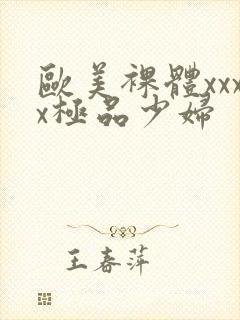 歐美裸體xxx
x極品少婦
王春萍